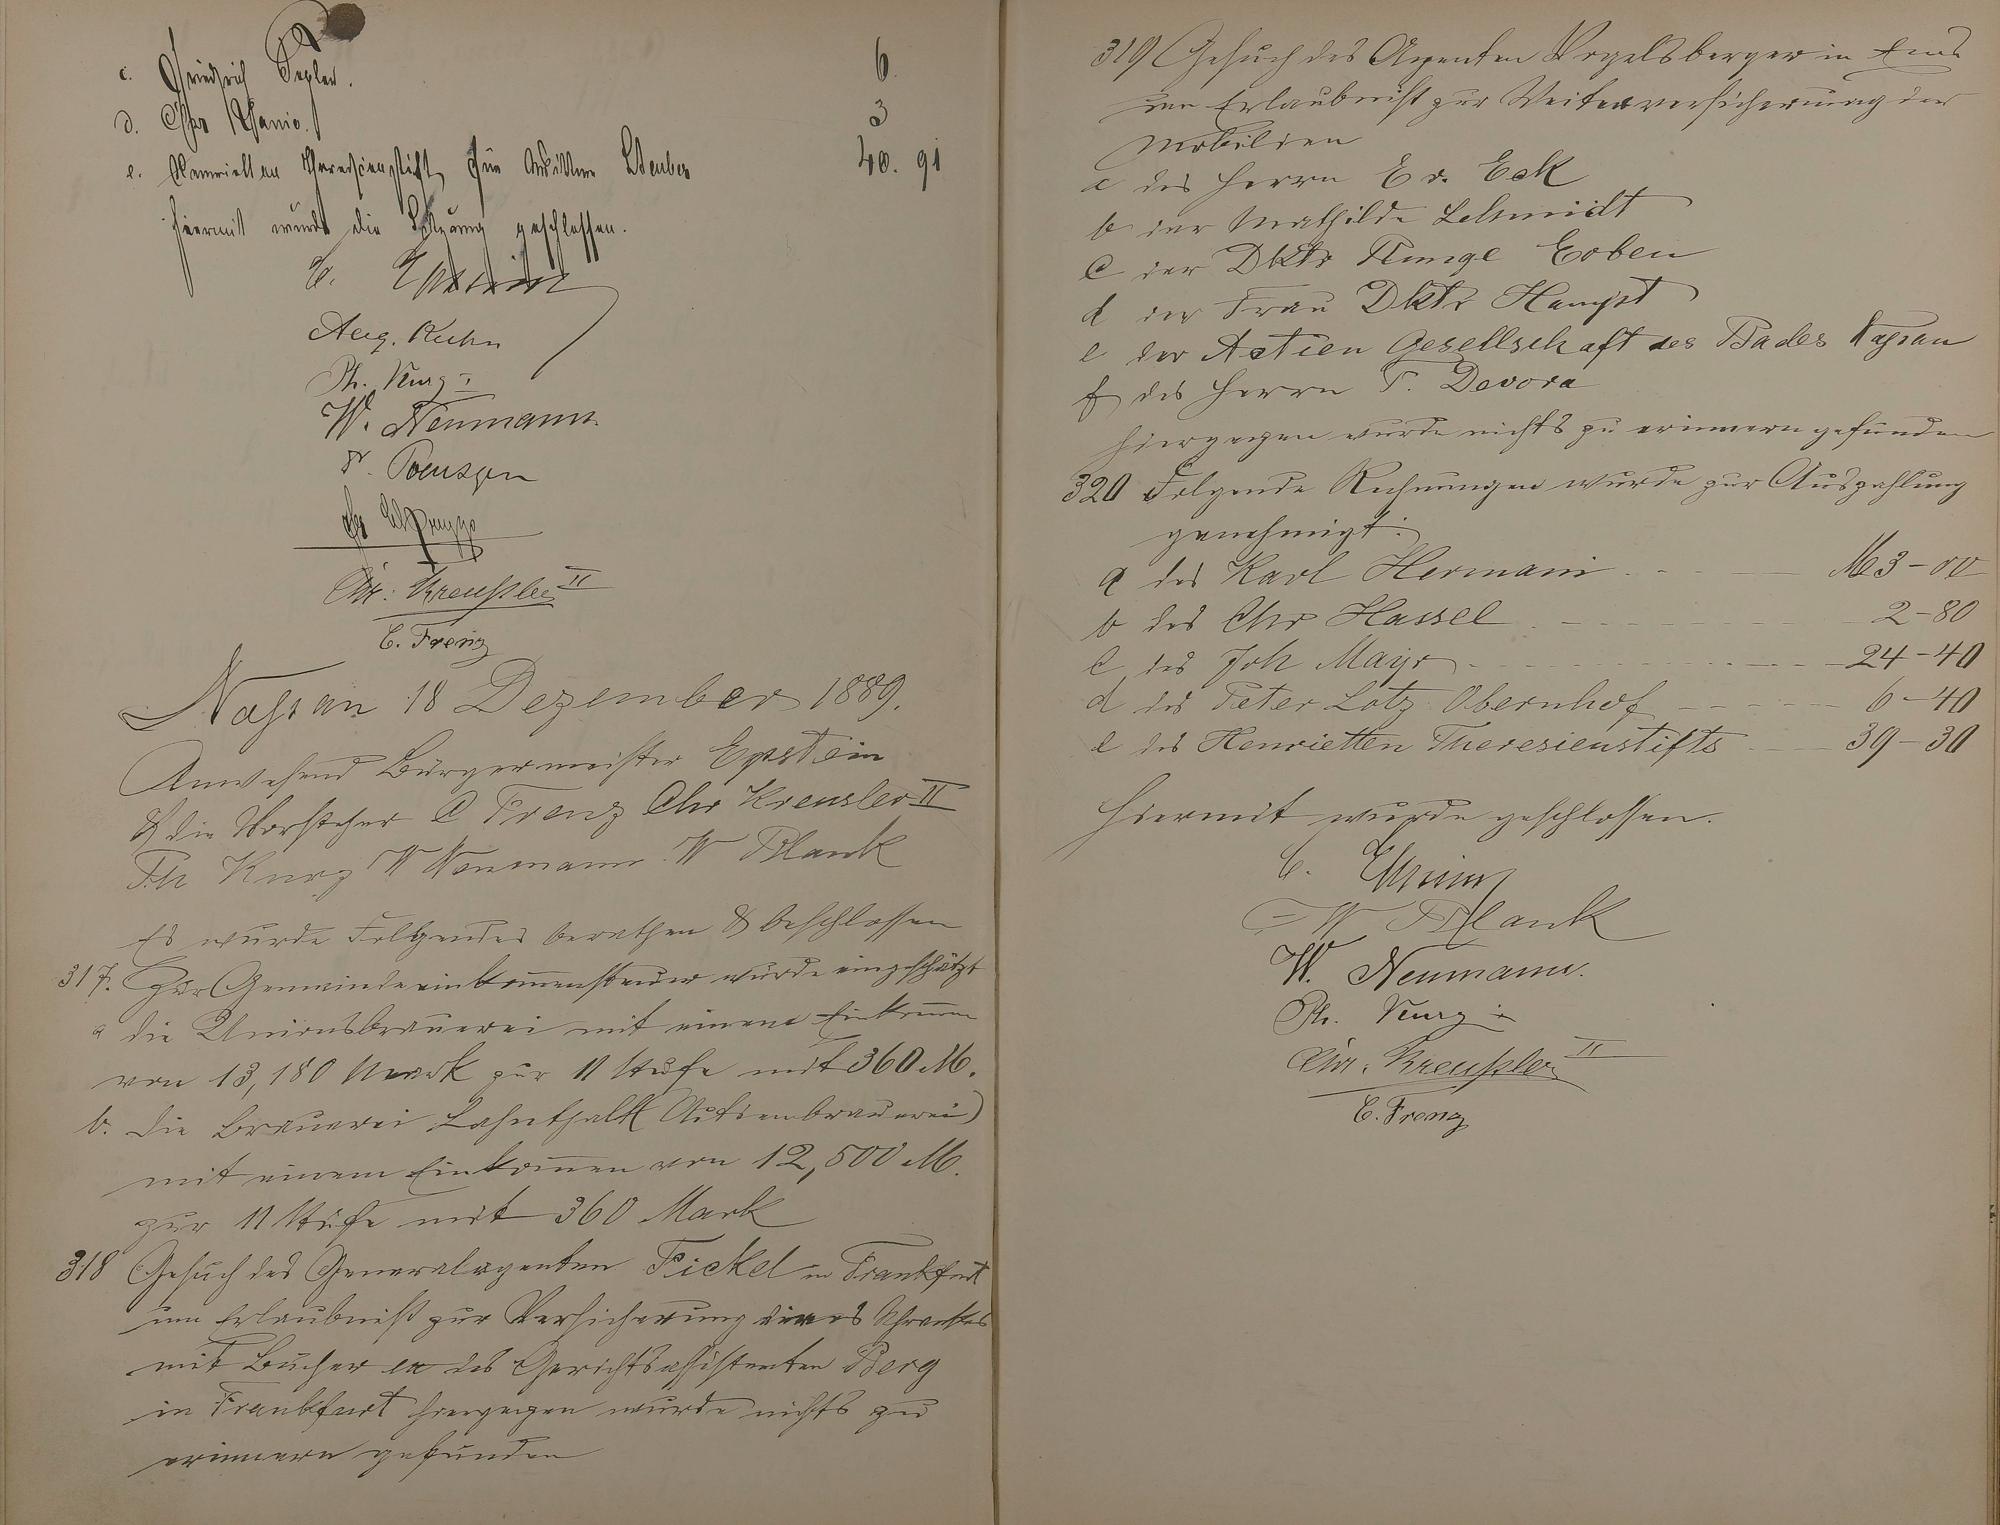 c. Friedrich 6.
d. Chr 3
e. Henrietten Theresienstift für Wittwe 40. 91
Hiermit wurde die Sitzung geschlossen.
E. Epstein
Aug. Kuhn
Ph. Kurz
W. Neumann
Chr: Kreußler II
C. Frenz
Nassau 18 Dezember 1889.
Anwesend Bürgermeister Epstein
& die Vorsteher C Frenz Chr Kreusler II
Ph Kurz W Neumann W Blank
Es wurde Folgendes berathen & beschlossen
317. Zur Gemeindeeinkom̅ensteuer wurde eingeschätzt
a die Unionsbrauerei mit einem Einkom̅en
von 13,180 Mark zur 11 Stufe mit 360 M.
b. die Brauerei Lahnthal (Actienbrauerei)
mit einem Einkom̅en von 12,500 M.
zur 11 Stufe mit 360 Mark
318 Gesuch des Generalagenten Fickel in Frankfurt
um Erlaubniß zur Versicherung eines Schrankes
mit Bücher des Gerichtsassistenten Berg
in Frankfurt hiergegen wurde nichts zu
erinnern gefunden
319 Gesuch des Agenten Vogelsberger in Ems
um Erlaubniß zur Weiterversicherung der
Mobilien
a des Herrn Ed. Eck
b der Mathilde Schmidt
c der Dktr Runge Erben
d der Frau Dktr Haupt
e der Actien Gesellschaft des Bades Nassau
f des Herrn F. Devora
hiergegen wurde nichts zu erinnern gefunden
320 Folgende Rechnungen wurde zur Auszahlung
genehmigt:
a des Karl Hermani M 3-00
b des Chr Hassel 2-80
c des Joh Mayr 24-40
d des Peter Lotz Obernhof 6-40
e des Henrietten Theresienstifts 39-30
Hiermit wurde geschlossen.
E. Epstein
W Blank
W. Neumann.
Ph. Kurz
Chr. Kreußler II
C. Frenz